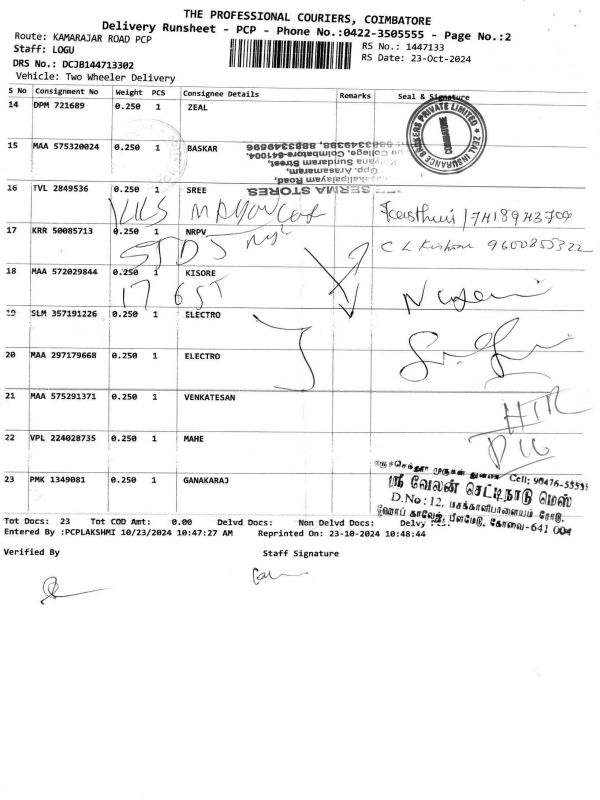 THE PROFESSIONAL COURIERS, COIMBATORE
Delivery Runsheet - PCP - Phone No.:0422-3505555 - Page No.:2
Route: KAMARAJAR ROAD PCP
RS No.: 1447133
Staff: LOGU
RS Date: 23-Oct-2024
DRS No.: DCJB144713302
Vehicle: Two Wheeler Delivery
S No Consignment No Weight PCS Consignee Details Remarks Seal & Signature
14 DPM 721689 0.250 1 ZEAL
ZEAL INSURANCE BROKERS PRIVATE LIMITED
COIMBATORE
15 MAA 575320024 0.250 1 BASKAR
SERMA STORES
Opp. Arasamaram,
Kalyana Sundaram Street,
College, Coimbatore-641004.
16 TVL 2849536 0.250 1 SREE
17 KRR 50085713 0.250 1 NRPV
9600855322
18 MAA 572029844 0.250 1 KISORE
19 SLM 357191226 0.250 1 ELECTRO
20 MAA 297179668 0.250 1 ELECTRO
21 MAA 575291371 0.250 1 VENKATESAN
22 VPL 224028735 0.250 1 MAHE
23 PMK 1349081 0.250 1 GANAKARAJ
Cell: 90476-55551
ஸ்ரீ வேலன் செட்டிநாடு மெஸ்
D.No : 12, மசக்காளிபாளையம் ரோடு,
ஹோப் காலேஜ், பீளமேடு, கோவை-641 004
Tot Docs: 23 Tot COD Amt: 0.00 Delvd Docs: Non Delvd Docs: Delvy
Entered By :PCPLAKSHMI 10/23/2024 10:47:27 AM Reprinted On: 23-10-2024 10:48:44
Verified By Staff Signature